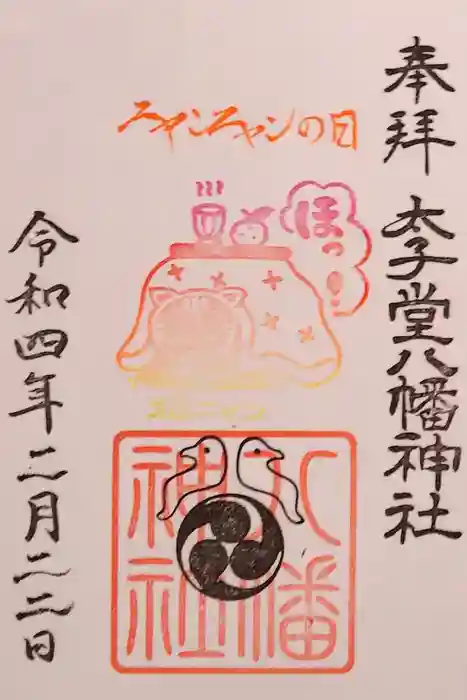 奉拝
太子堂八幡神社
ニャンニャンの日
ほっ!
八幡
神社
令和四年二月二二日